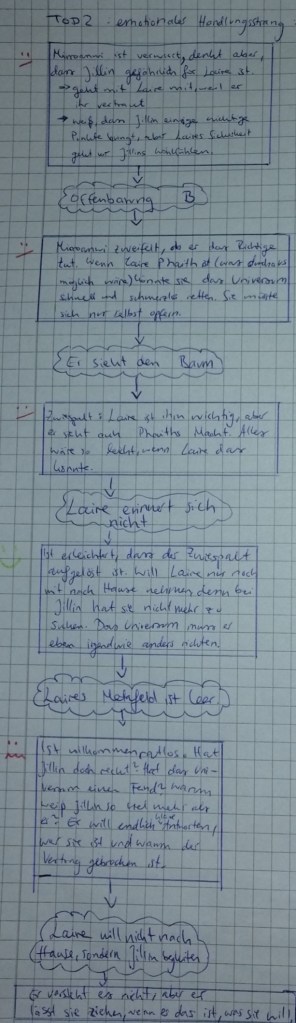 TOD2 - emotionaler Handlungsstrang
ist verwirrt, denkt aber,
dass Jillin gefährlich für Laire ist.
→ geht mit Laire mit, weil er
ihr vertraut
→ weiß, dass Jillin einige wichtige
Punkte bringt, aber Laires Sicherheit
geht vor Jillins
Offenbarung B
zweifelt, ob er das Richtige
tut. Wenn Laire Phaith ist (was durchaus
möglich wäre) könnte sie das Universum
schnell und schmerzlos retten. Sie müsste
sich nur selbst opfern.
Er sieht den Baum
Zwiespalt: Laire ist ihm wichtig, aber
er sieht auch Phaiths Macht. Alles
wäre so leicht, wenn Laire das
könnte.
Laire erinnert sich
nicht
Ist erleichtert, dass der Zwiespalt
aufgelöst ist. Will Laire nur noch
mit nach Hause nehmen, denn bei
Jillin hat sie nichts mehr zu
suchen. Das Universum muss es
eben irgendwie anders richten.
Laires ist leer
Ist vollkommen ratlos. Hat
Jillin doch recht? Hat das Uni-
versum einen Feind? Warum
weiß Jillin so viel mehr als
er? Er will endlich Antworten,
wer sie ist und warum der
Vertrag gebrochen ist.
Laire will nicht nach
Hause, sondern Jillin begleiten
Er versteht es nicht, aber er
lässt sie ziehen, wenn es das ist, was sie will